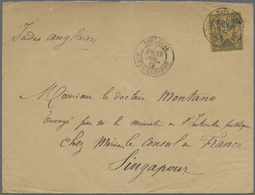 Indes anglaises
Monsieur le docteur Montano
envoyé par M le ministre de l'Instruction publique
chez Monsieur le Consul de France
Singapour